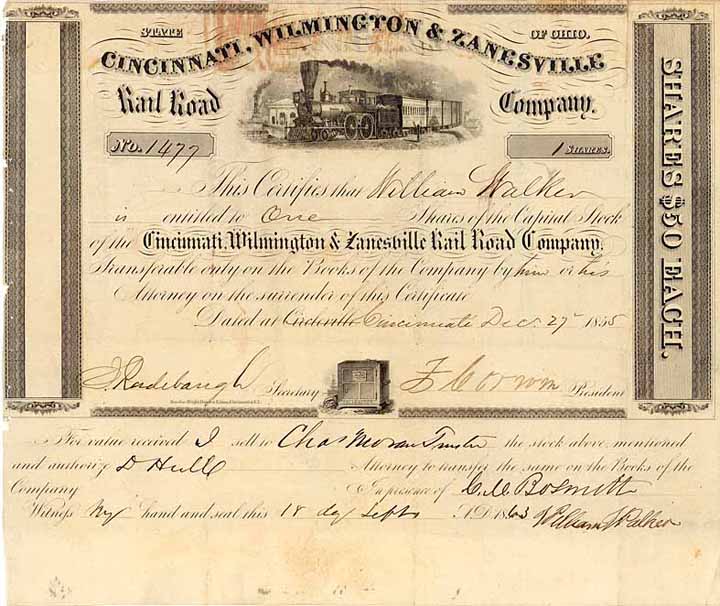 STATE OF OHIO.
CINCINNATI, WILMINGTON & ZANESVILLE
Rail Road Company.
No. 1477
1 SHARES.
This Certifies that William Walker
is entitled to One Shares of the Capital Stock
of the Cincinnati, Wilmington & Zanesville Rail Road Company.
Transferable only on the Books of the Company by him or his
Attorney on the surrender of this Certificate
Dated at Circleville Cincinnati Dec. 27 1855
Radebaugh Secretary
F Corwin President
SHARES $50 EACH.
For value received I sell to Chas Moran Trustee the stock above mentioned
and authorize D Hull Attorney to transfer the same on the Books of the
Company In presence of
Witness My hand and seal this 18 day Septr A.D. 1863 William Walker